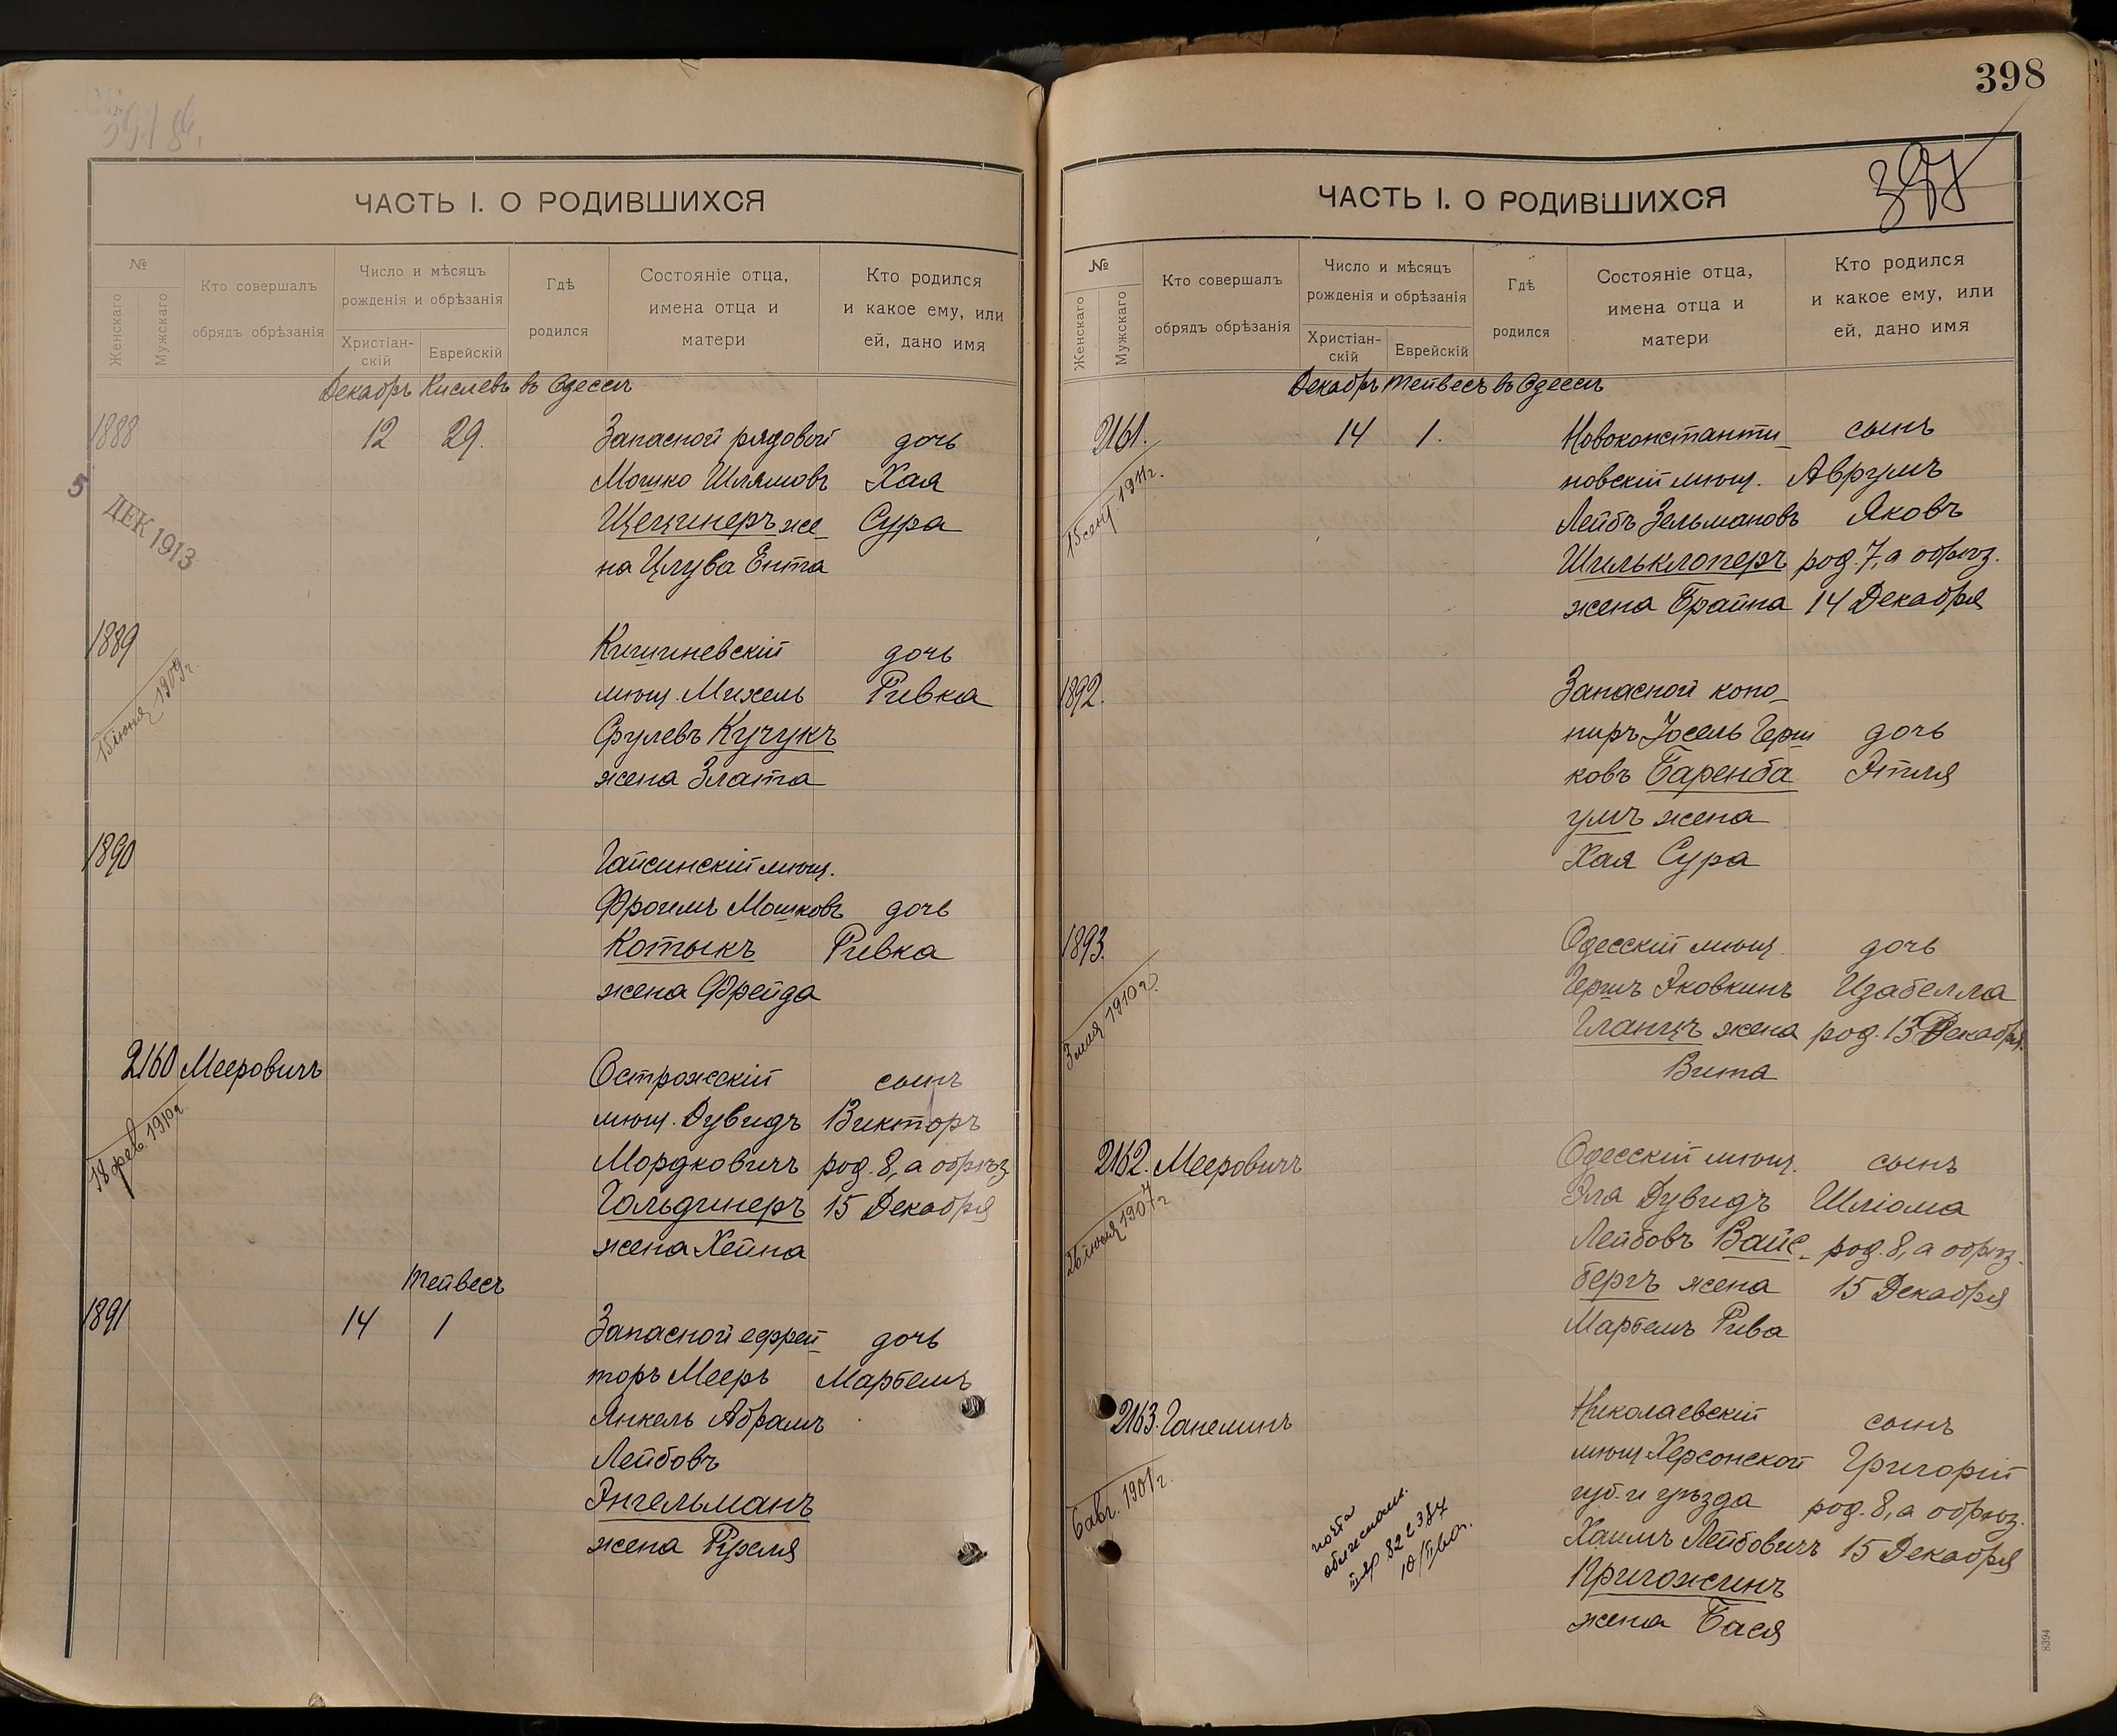 ЧАСТЬ I. О РОДИВШИХСЯ
№
Женскаго
Мужскаго
Кто совершалъ
обрядъ обрѣзанія
Число и мѣсяцъ
рожденія и обрѣзанія
Христіан-
скій
Еврейскій
Гдѣ
родился
Состояніе отца,
имена отца и
матери
Кто родился
и какое ему, или
ей, дано имя
Декабрь Кислевъ въ Одессѣ
1888 12 29. Запасной рядовой дочь
Мошко Шлямовъ Хая
Щецинеръ же- Сура
на Цлува Ента
5 ДЕК 1913
1889 Кишиневскій дочь
мѣщ. Михель Ривка
Срулевъ Кучукъ
жена Злата
15 іюня 1909 г.
1890 Гайсинскій мѣщ.
Фроимъ Мошковъ дочь
Котыкъ Ривка
жена Фрейда
2160 Мееровичъ Острожскій сынъ
мѣщ. Дувидъ Викторъ
Мордковичъ род. 8, а обрѣз
Гольдинеръ 15 Декабря
жена Хейна
18 фев. 1910 г.
Тейвесъ
1891 14 1 Запасной ефрей- дочь
торъ Мееръ Марбемъ
Янкель Абрамъ
Лейбовъ
Энгельманъ
жена Рухля
398
397
ЧАСТЬ I. О РОДИВШИХСЯ
№
Женскаго
Мужскаго
Кто совершалъ
обрядъ обрѣзанія
Число и мѣсяцъ
рожденія и обрѣзанія
Христіан-
скій
Еврейскій
Гдѣ
родился
Состояніе отца,
имена отца и
матери
Кто родился
и какое ему, или
ей, дано имя
Декабрь Тейвесъ въ Одессѣ
2161. 14 1. Новоконстанти- сынъ
новскій мѣщ. Аврумъ
Лейбъ Зельмановъ Яковъ
Шильклоперъ род. 7, а обрѣз.
жена Брайна 14 Декабря
1892. Запасной коно-
ниръ Іосель Герш дочь
ковъ Баренба Этля
умъ жена
Хая Сура
1893. Одесскій мѣщ. дочь
Гершъ Яковкинъ Изабелла
Гланцъ жена род. 13 Декабря.
Вита
3 мая 1910 г.
2162. Мееровичъ Одесскій мѣщ. сынъ
Эля Дувидъ Шліома
Лейбовъ Вайс- род. 8, а обрѣз.
бергъ жена 15 Декабря
Марбемъ Рива
26 іюля 1907 г
2163. Ганелинъ Николаевскій сынъ
мѣщ Херсонской Григорій
губ. и уѣзда род. 8, а обрѣз.
Хаимъ Лейбовичъ 15 Декабря
Пригожинъ
жена Бася
6 авг. 1901 г.
8394